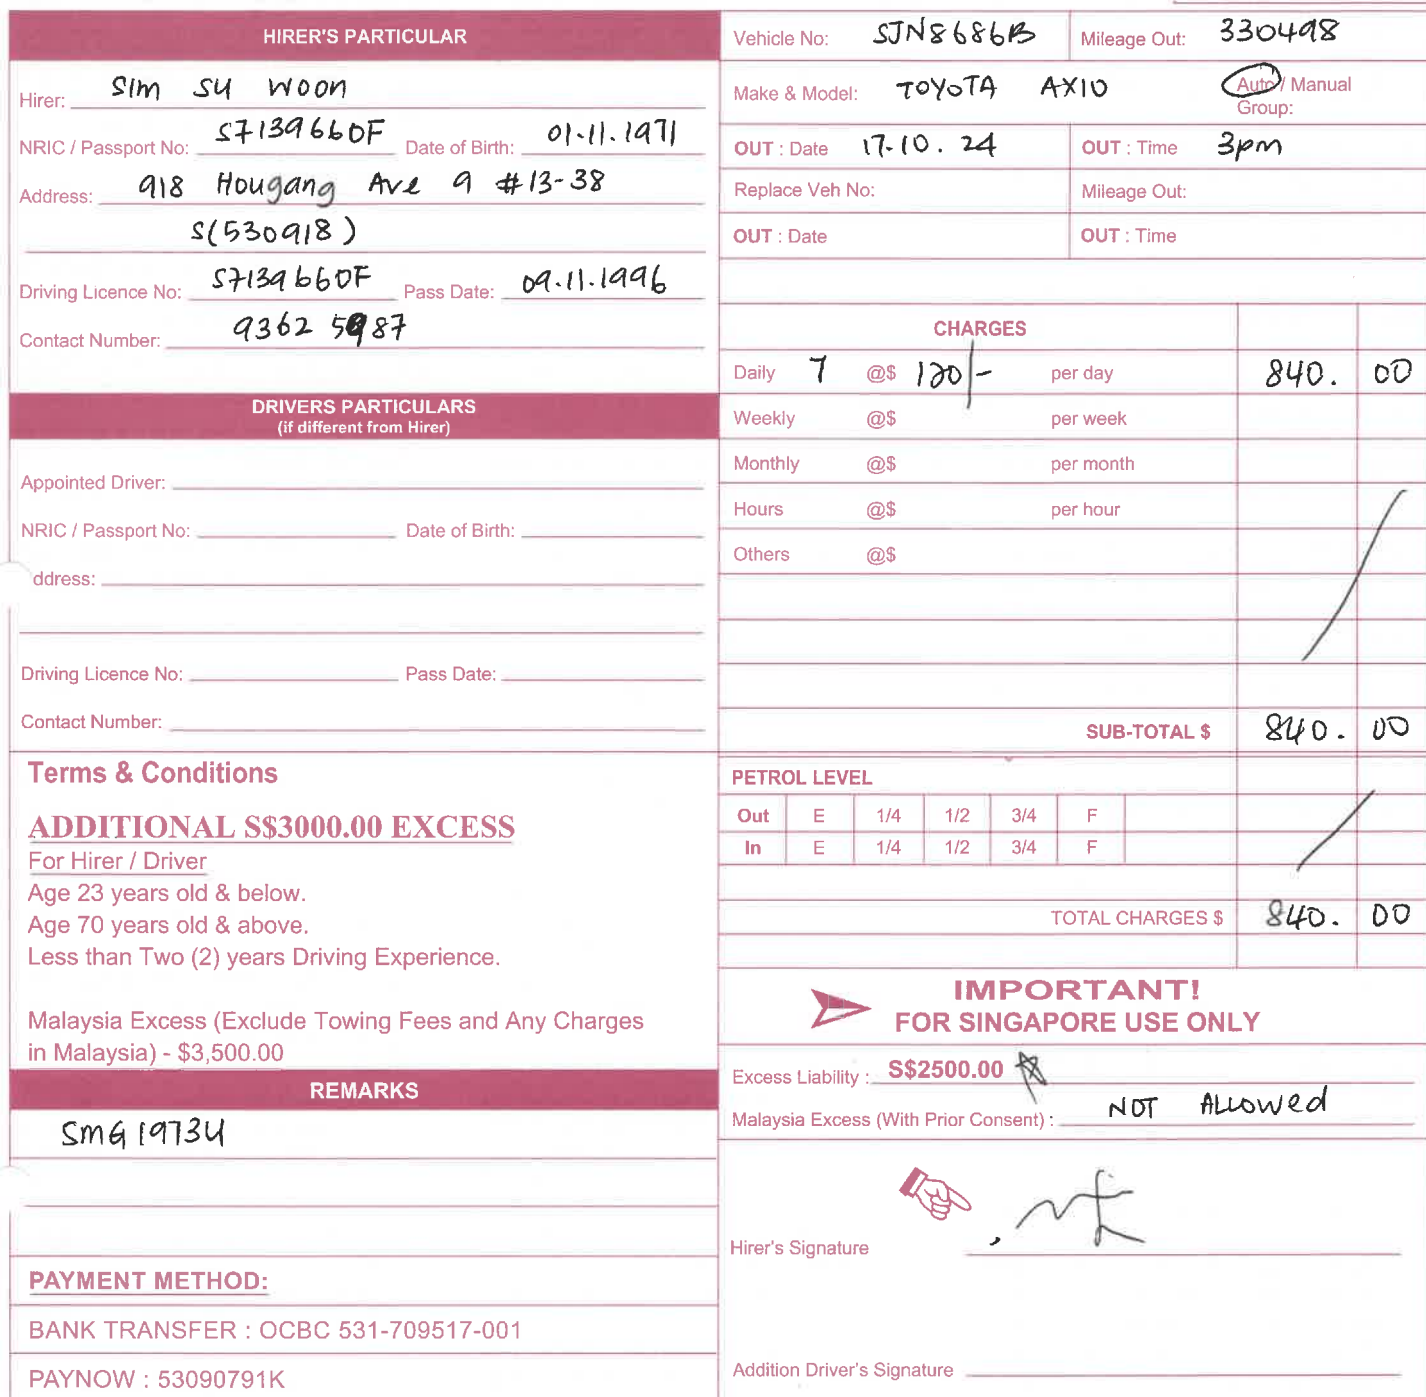 HIRER'S PARTICULAR
Hirer: Sim Su Woon
NRIC / Passport No: S7139660F Date of Birth: 01.11.1971
Address: 918 Hougang Ave 9 #13-38
S(530918)
Driving Licence No: S7139660F Pass Date: 09.11.1996
Contact Number: 9362 5987
DRIVERS PARTICULARS
(if different from Hirer)
Appointed Driver:
NRIC / Passport No: Date of Birth:
ddress:
Driving Licence No: Pass Date:
Contact Number:
Terms & Conditions
ADDITIONAL S$3000.00 EXCESS
For Hirer / Driver
Age 23 years old & below.
Age 70 years old & above.
Less than Two (2) years Driving Experience.
Malaysia Excess (Exclude Towing Fees and Any Charges
in Malaysia) - $3,500.00
REMARKS
SMG1973U
PAYMENT METHOD:
BANK TRANSFER : OCBC 531-709517-001
PAYNOW : 53090791K
Vehicle No: SJN8686B Mileage Out: 330498
Make & Model: TOYOTA AXIO Auto / Manual
Group:
OUT : Date 17.10.24 OUT : Time 3pm
Replace Veh No: Mileage Out:
OUT : Date OUT : Time
CHARGES
Daily 7 @$ 120/- per day 840. 00
Weekly @$ per week
Monthly @$ per month
Hours @$ per hour
Others @$
SUB-TOTAL $ 840. 00
PETROL LEVEL
Out E 1/4 1/2 3/4 F
In E 1/4 1/2 3/4 F
TOTAL CHARGES $ 840. 00
IMPORTANT!
FOR SINGAPORE USE ONLY
Excess Liability : S$2500.00
Malaysia Excess (With Prior Consent) : NOT ALLOWED
Hirer's Signature
Addition Driver's Signature